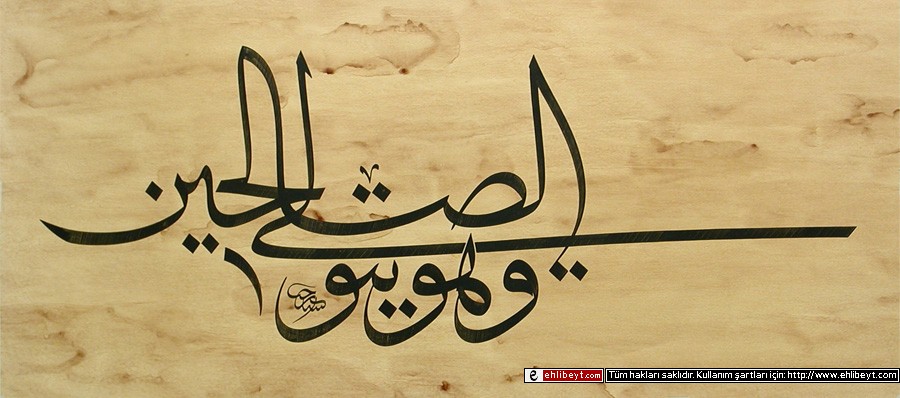 وهو يتولى الصلحين
ehlibeyt.com Tüm hakları saklıdır. Kullanım şartları için: http://www.ehlibeyt.com